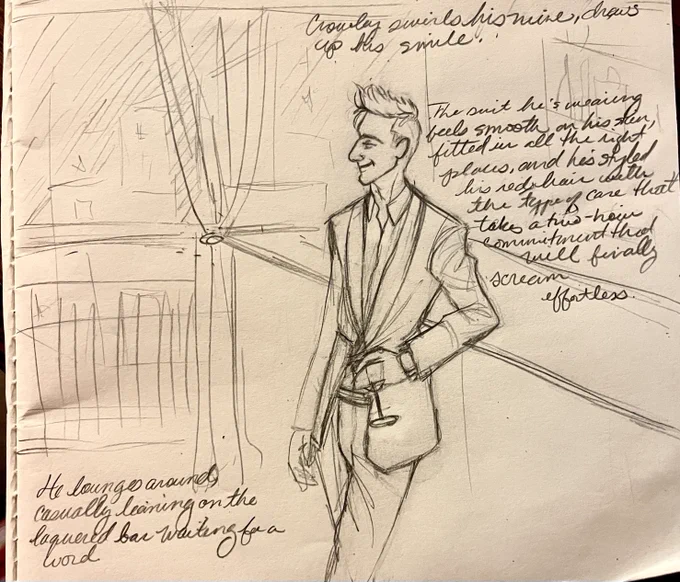 Crowley swirls his wine, draws
up his smile.
The suit he's wearing
feels smooth on his skin,
fitted in all the right
places, and he's styled
his red hair with
the type of care that
takes a two-hour
commitment that
will finally
scream
effortless.
He lounges around,
casually leaning on the
laquered bar waiting for a
word